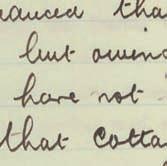 tha
but owing
have not
that cotta